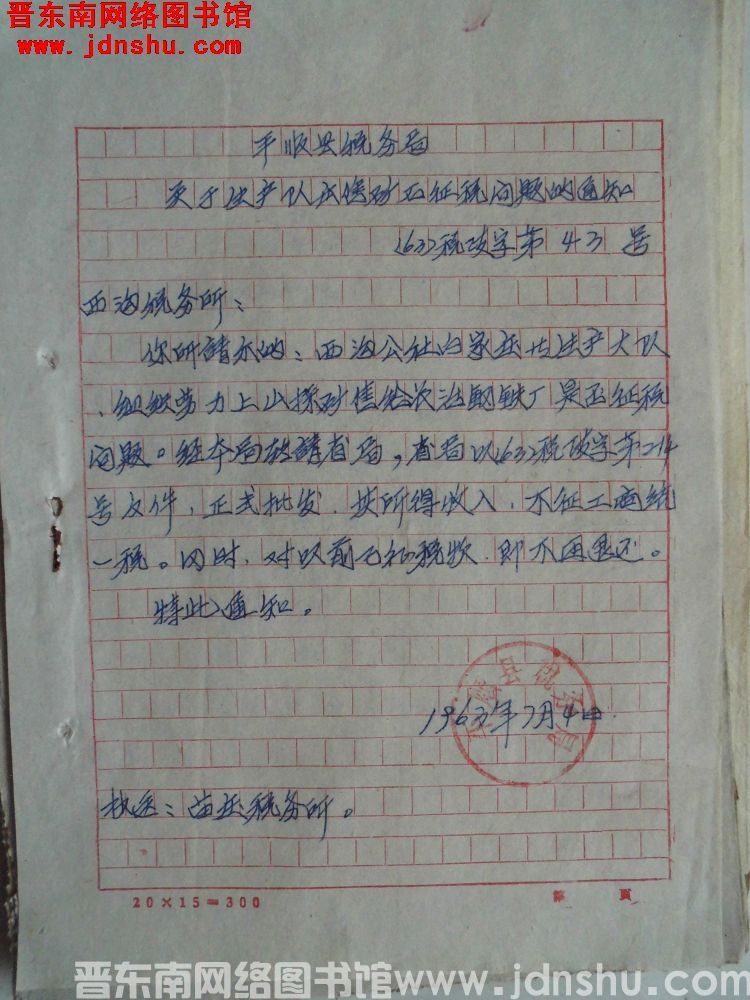 晋东南网络图书馆
www.jdnshu.com
平顺县税务局
关于生产队采售矿石征税问题的通知
(63)税政字第43号
西沟税务所：
你所请示的：西沟公社白家庄等生产大队
、组织劳力上山採矿售给长治钢铁厂是否征税
问题。经本局转请省局，省局以(63)税政字第214
号文件，正式批发，其所得收入，不征工商统
一税。同时，对以前已征税款，即不再退还。
特此通知。
平顺县税务局
1963年7月4日.
抄送：苗庄税务所。
20×15=300
第 页
晋东南网络图书馆www.jdnshu.com